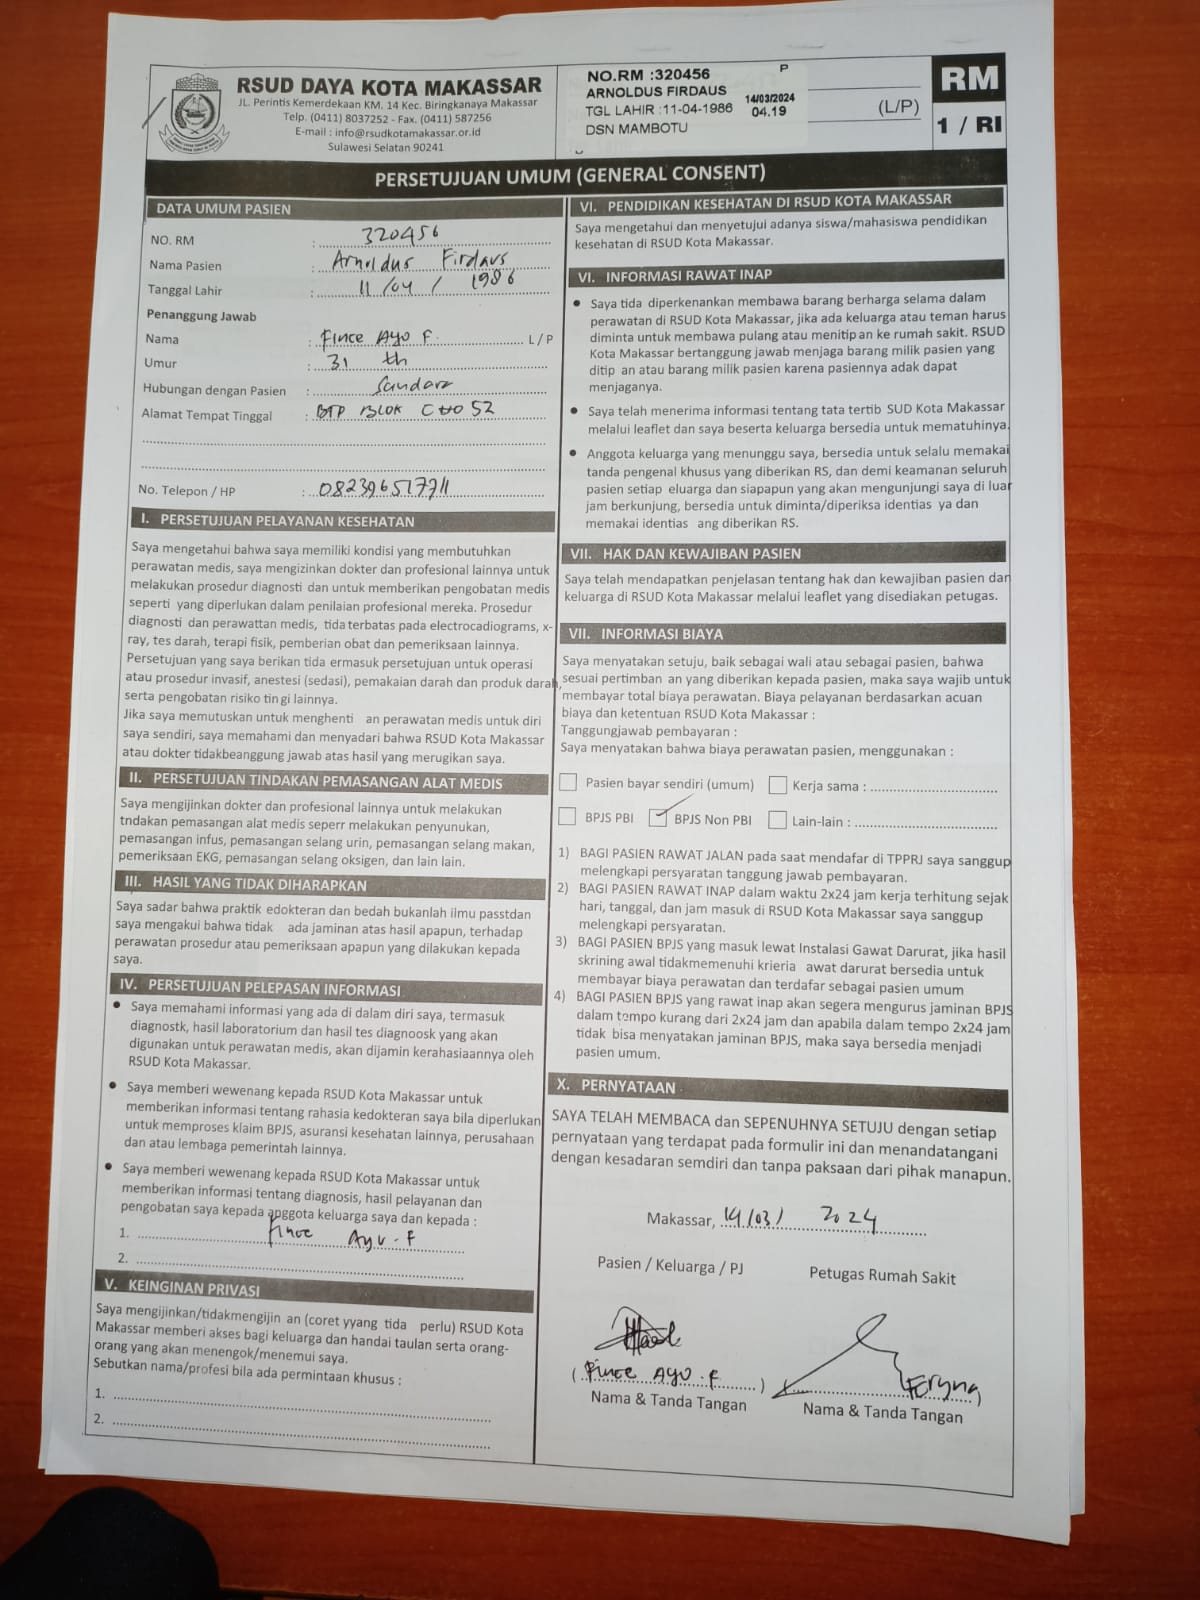 RSUD DAYA KOTA MAKASSAR
JL. Perintis Kemerdekaan KM. 14 Kec. Biringkanaya Makassar
Telp. (0411) 8037252 - Fax. (0411) 587256
E-mail : info@rsudkotamakassar.or.id
Sulawesi Selatan 90241
NO.RM :320456 P
ARNOLDUS FIRDAUS
TGL LAHIR :11-04-1986 14/03/2024 04.19
DSN MAMBOTU
(L/P)
RM
1 / RI
PERSETUJUAN UMUM (GENERAL CONSENT)
DATA UMUM PASIEN
NO. RM : 320456
Nama Pasien : Arnoldus Firdaus
Tanggal Lahir : 11/04/1986
Penanggung Jawab
Nama : Fince Ayu F. L/P
Umur : 31 th
Hubungan dengan Pasien : Saudara
Alamat Tempat Tinggal : BTP BLOK C 52
No. Telepon / HP :
I. PERSETUJUAN PELAYANAN KESEHATAN
Saya mengetahui bahwa saya memiliki kondisi yang membutuhkan
perawatan medis, saya mengizinkan dokter dan profesional lainnya untuk
melakukan prosedur diagnosti dan untuk memberikan pengobatan medis
seperti yang diperlukan dalam penilaian profesional mereka. Prosedur
diagnosti dan perawattan medis, tida terbatas pada electrocadiograms, x-
ray, tes darah, terapi fisik, pemberian obat dan pemeriksaan lainnya.
Persetujuan yang saya berikan tida ermasuk persetujuan untuk operasi
atau prosedur invasif, anestesi (sedasi), pemakaian darah dan produk darah,
serta pengobatan risiko tin gi lainnya.
Jika saya memutuskan untuk menghenti an perawatan medis untuk diri
saya sendiri, saya memahami dan menyadari bahwa RSUD Kota Makassar
atau dokter tidakbeanggung jawab atas hasil yang merugikan saya.
II. PERSETUJUAN TINDAKAN PEMASANGAN ALAT MEDIS
Saya mengijinkan dokter dan profesional lainnya untuk melakukan
tndakan pemasangan alat medis seperr melakukan penyunukan,
pemasangan infus, pemasangan selang urin, pemasangan selang makan,
pemeriksaan EKG, pemasangan selang oksigen, dan lain lain.
III. HASIL YANG TIDAK DIHARAPKAN
Saya sadar bahwa praktik edokteran dan bedah bukanlah ilmu passtdan
saya mengakui bahwa tidak ada jaminan atas hasil apapun, terhadap
perawatan prosedur atau pemeriksaan apapun yang dilakukan kepada
saya.
IV. PERSETUJUAN PELEPASAN INFORMASI
• Saya memahami informasi yang ada di dalam diri saya, termasuk
diagnostk, hasil laboratorium dan hasil tes diagnoosk yang akan
digunakan untuk perawatan medis, akan dijamin kerahasiaannya oleh
RSUD Kota Makassar.
• Saya memberi wewenang kepada RSUD Kota Makassar untuk
memberikan informasi tentang rahasia kedokteran saya bila diperlukan
untuk memproses klaim BPJS, asuransi kesehatan lainnya, perusahaan
dan atau lembaga pemerintah lainnya.
• Saya memberi wewenang kepada RSUD Kota Makassar untuk
memberikan informasi tentang diagnosis, hasil pelayanan dan
pengobatan saya kepada anggota keluarga saya dan kepada :
1. Fince Ayu - F
2.
V. KEINGINAN PRIVASI
Saya mengijinkan/tidakmengijin an (coret yyang tida perlu) RSUD Kota
Makassar memberi akses bagi keluarga dan handai taulan serta orang-
orang yang akan menengok/menemui saya.
Sebutkan nama/profesi bila ada permintaan khusus :
1.
2.
VI. PENDIDIKAN KESEHATAN DI RSUD KOTA MAKASSAR
Saya mengetahui dan menyetujui adanya siswa/mahasiswa pendidikan
kesehatan di RSUD Kota Makassar.
VI. INFORMASI RAWAT INAP
• Saya tida diperkenankan membawa barang berharga selama dalam
perawatan di RSUD Kota Makassar, jika ada keluarga atau teman harus
diminta untuk membawa pulang atau menitip an ke rumah sakit. RSUD
Kota Makassar bertanggung jawab menjaga barang milik pasien yang
ditip an atau barang milik pasien karena pasiennya adak dapat
menjaganya.
• Saya telah menerima informasi tentang tata tertib SUD Kota Makassar
melalui leaflet dan saya beserta keluarga bersedia untuk mematuhinya.
• Anggota keluarga yang menunggu saya, bersedia untuk selalu memakai
tanda pengenal khusus yang diberikan RS, dan demi keamanan seluruh
pasien setiap eluarga dan siapapun yang akan mengunjungi saya di luar
jam berkunjung, bersedia untuk diminta/diperiksa identias ya dan
memakai identias ang diberikan RS.
VII. HAK DAN KEWAJIBAN PASIEN
Saya telah mendapatkan penjelasan tentang hak dan kewajiban pasien dan
keluarga di RSUD Kota Makassar melalui leaflet yang disediakan petugas.
VII. INFORMASI BIAYA
Saya menyatakan setuju, baik sebagai wali atau sebagai pasien, bahwa
sesuai pertimban an yang diberikan kepada pasien, maka saya wajib untuk
membayar total biaya perawatan. Biaya pelayanan berdasarkan acuan
biaya dan ketentuan RSUD Kota Makassar :
Tanggungjawab pembayaran :
Saya menyatakan bahwa biaya perawatan pasien, menggunakan :
Pasien bayar sendiri (umum) Kerja sama :
BPJS PBI BPJS Non PBI Lain-lain :
1) BAGI PASIEN RAWAT JALAN pada saat mendafar di TPPRJ saya sanggup
melengkapi persyaratan tanggung jawab pembayaran.
2) BAGI PASIEN RAWAT INAP dalam waktu 2x24 jam kerja terhitung sejak
hari, tanggal, dan jam masuk di RSUD Kota Makassar saya sanggup
melengkapi persyaratan.
3) BAGI PASIEN BPJS yang masuk lewat Instalasi Gawat Darurat, jika hasil
skrining awal tidakmemenuhi krieria awat darurat bersedia untuk
membayar biaya perawatan dan terdafar sebagai pasien umum
4) BAGI PASIEN BPJS yang rawat inap akan segera mengurus jaminan BPJS
dalam tempo kurang dari 2x24 jam dan apabila dalam tempo 2x24 jam
tidak bisa menyatakan jaminan BPJS, maka saya bersedia menjadi
pasien umum.
X. PERNYATAAN
SAYA TELAH MEMBACA dan SEPENUHNYA SETUJU dengan setiap
pernyataan yang terdapat pada formulir ini dan menandatangani
dengan kesadaran semdiri dan tanpa paksaan dari pihak manapun.
Makassar, 14/03/ 2024
Pasien / Keluarga / PJ Petugas Rumah Sakit
( Fince Ayu . F )
Nama & Tanda Tangan Nama & Tanda Tangan